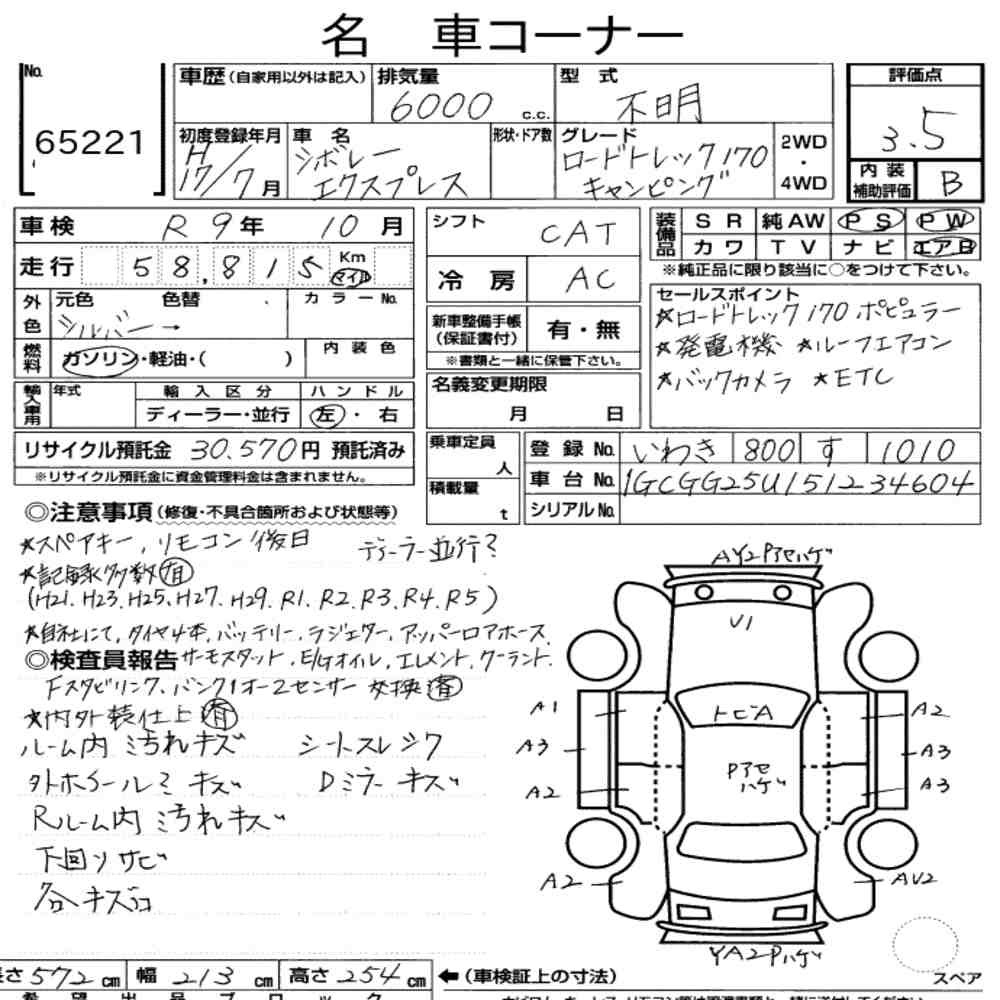 名 車コーナー
No.
65221
車歴(自家用以外は記入)
排気量
6000 c.c.
型式
不明
評価点
3.5
内装補助評価 B
初度登録年月
H17/7月
車名
シボレー
エクスプレス
形状・ドア数
グレード
ロードトレック170
キャンピング
2WD
・
4WD
車検 R9年 10月
走行 58,815 Km マイル
外色
元色 色替 カラーNo.
シルバー→
燃料 ガソリン・軽油・( )
内装色
輸入車用
年式
輸入区分
ディーラー・並行
ハンドル
左・右
リサイクル預託金 30.570円 預託済み
※リサイクル預託金に資金管理料金は含まれません。
シフト CAT
冷房 AC
新車整備手帳(保証書付) 有・無
※書類と一緒に保管下さい。
名義変更期限
月 日
装備品
SR 純AW PS PW
カワ TV ナビ エアB
※純正品に限り該当に○をつけて下さい。
セールスポイント
★ロードトレック170 ポピュラー
★発電機 ★ルーフエアコン
★バックカメラ ★ETC
乗車定員 人
積載量 t
登録No. いわき 800 す 1010
車台No. 1GCGG25U151234604
シリアルNo.
◎注意事項(修復・不具合箇所および状態等)
★スペアキー,リモコン後日 ディーラー並行?
★記録簿多数有
(H21.H23.H25.H27.H29.R1.R2.R3.R4.R5)
★自社にて,タイヤ4本,バッテリー,ラジェター,アッパーロアホース
◎検査員報告 サーモスタット,E/Gオイル,エレメント,クーラント.
Fスタビリンク、バンク1オー2センサー交換済
★内外装仕上済
ルーム内汚れキズ シートスレシワ
外ホイールミキズ Dミラーキズ
Rルーム内汚れキズ
下回りサビ
各キズ凹
AY2Pアセハゲ
U1
トビA
Pアセ
ハゲ
A1
A3
A2
A2
A2
A3
A3
AU2
YA2Pハゲ
スペア
長さ572cm 幅213cm 高さ254cm ←(車検証上の寸法)
希望出品ブロック